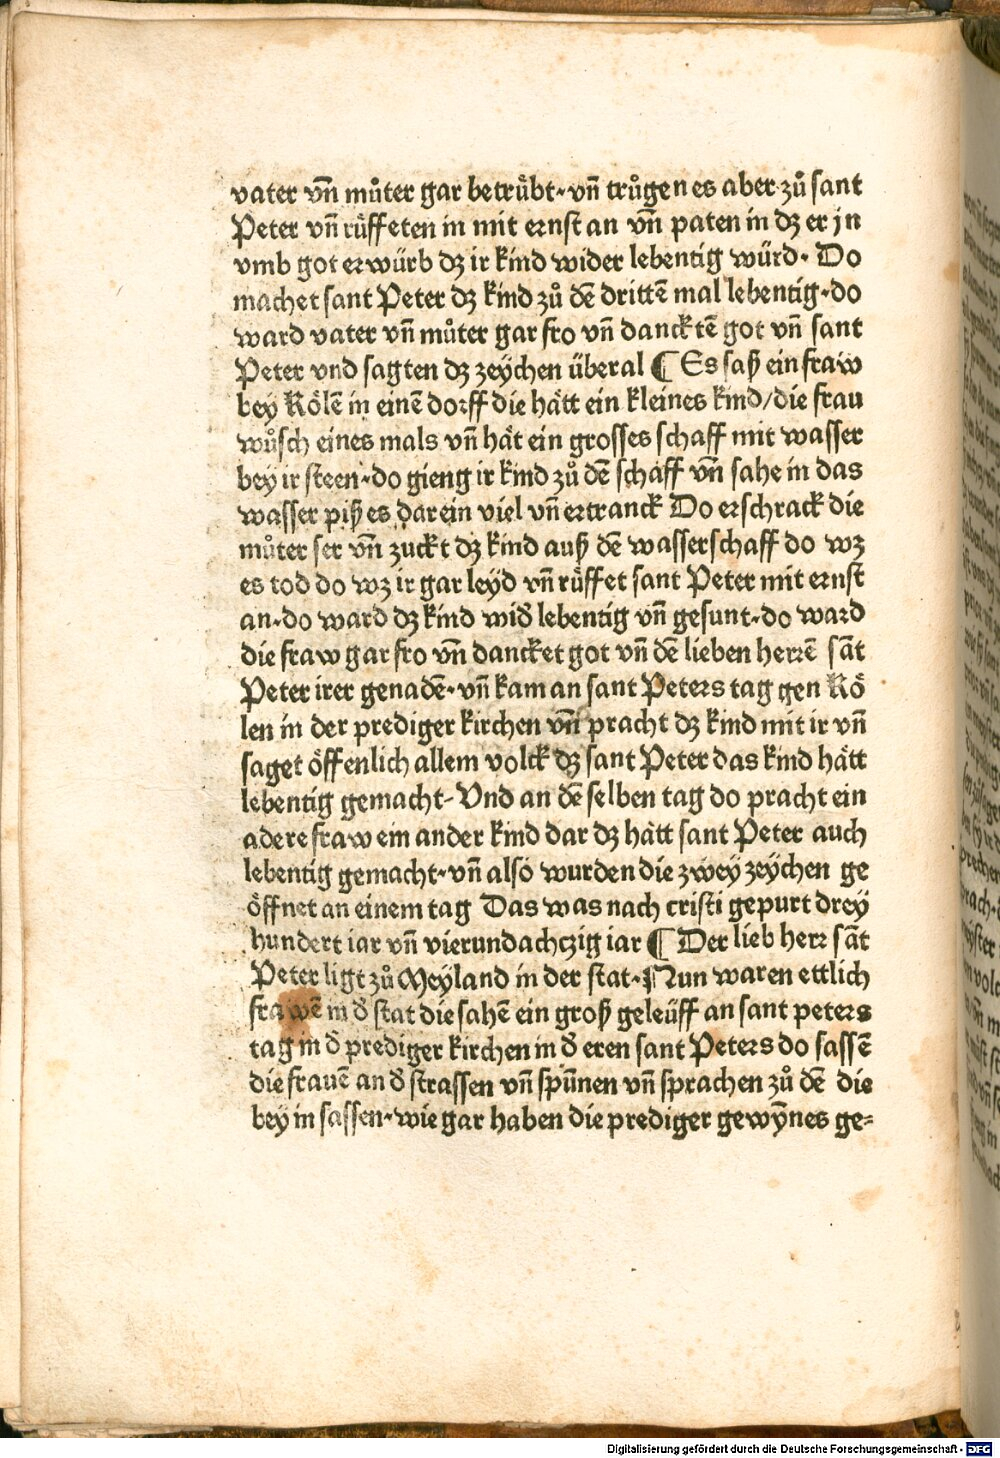 vater vn̄ můter gar betruͤbt·vn̄ truͦgen es aber zů sant
Peter vn̄ ruͤffeten in mit ernst an vn̄ paten in dꝫ er jn
vmb got erwürb dꝫ ir kind wider lebentig würd· Do
machet sant Peter dꝫ kind zů dē drittē mal lebentig·do
ward vater vn̄ můter gar fro vn̄ danck tē got vn̄ sant
Peter vnd sagten dꝫ zeÿchen überal ¶ Es saß ein fraw
beÿ Koͤlē in einē dorff die haͤtt ein kleines kind/die frau
wůsch eines mals vn̄ haͤt ein grosses schaff mit wasser
beÿ ir steen·do gieng ir kind zů dē schaff vn̄ sahe in das
wasser piß es darein viel vn̄ ertranck Do erschrack die
můter ser vn̄ zuckt dꝫ kind auß dē wasserschaff do wꝫ
es tod do wꝫ ir gar leÿd vn̄ ruͤffet sant Peter mit ernst
an·do ward dꝫ kind wid̕ lebentig vn̄ gesunt·do ward
die fraw gar fro vn̄ dancket got vn̄ dē lieben herrē sāt
Peter irer genadē·vn̄ kam an sant Peters tag gen Koͤ
len in der prediger kirchen vn̄ pracht dꝫ kind mit ir vn̄
saget oͤffenlich allem volck dꝫ sant Peter das kind haͤtt
lebentig gemacht· Vnd an dē selben tag do pracht ein
adere fraw ein ander kind dar dꝫ haͤtt sant Peter auch
lebentig gemacht·vn̄ also wurden die zweÿ zeÿchen ge
oͤffnet an einem tag Das was nach cristi gepurt dreÿ
hundert iar vn̄ vierundachczig iar ¶ Der lieb herr sāt
Peter ligt zů Meÿland in der stat·Nun waren ettlich
frawē in d̕ stat die sahē ein groß geleüff an sant peters
tag in d̕ prediger kirchen in d̕ eren sant Peters do sassē
die frauē an d̕ strassen vn̄ spūnen vn̄ sprachen zů dē die
beÿ in sassen·wie gar haben die prediger gewȳnes ge⸗
Digitalisierung gefördert durch die Deutsche Forschungsgemeinschaft - DFG